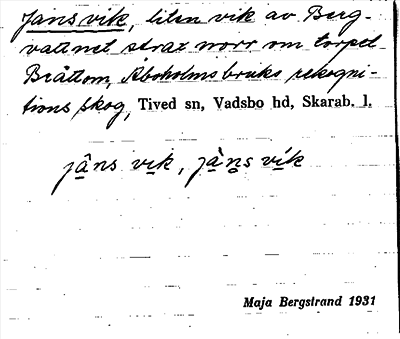 Jansvik, liten vik av Berg-
vattnet strax norr om torpet
Bråttom, Åboholms bruks rekogni-
tions skog, Tived sn, Vadsbo hd, Skarab. l.
jâns vik, jàns vík
Maja Bergstrand 1931